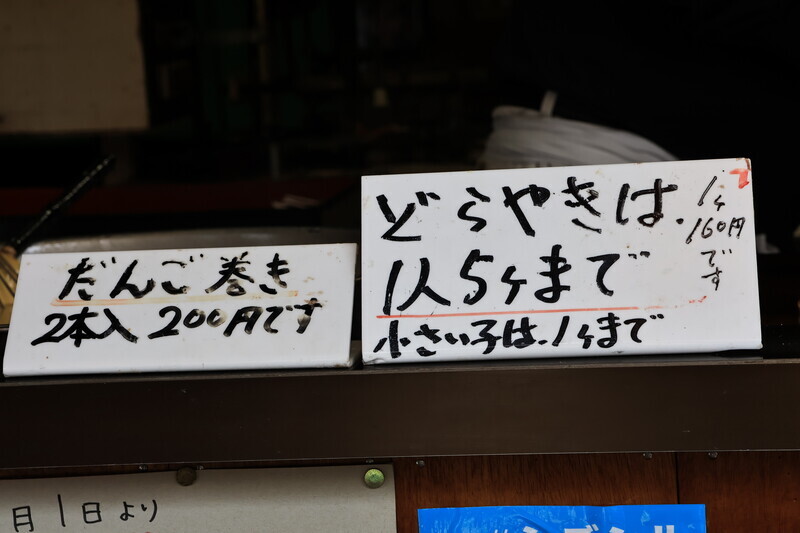 だんご巻き
2本入 200円です
どらやきは、
1人5ヶまで
小さい子は、1ヶまで
1ヶ
160円
です
月1日より